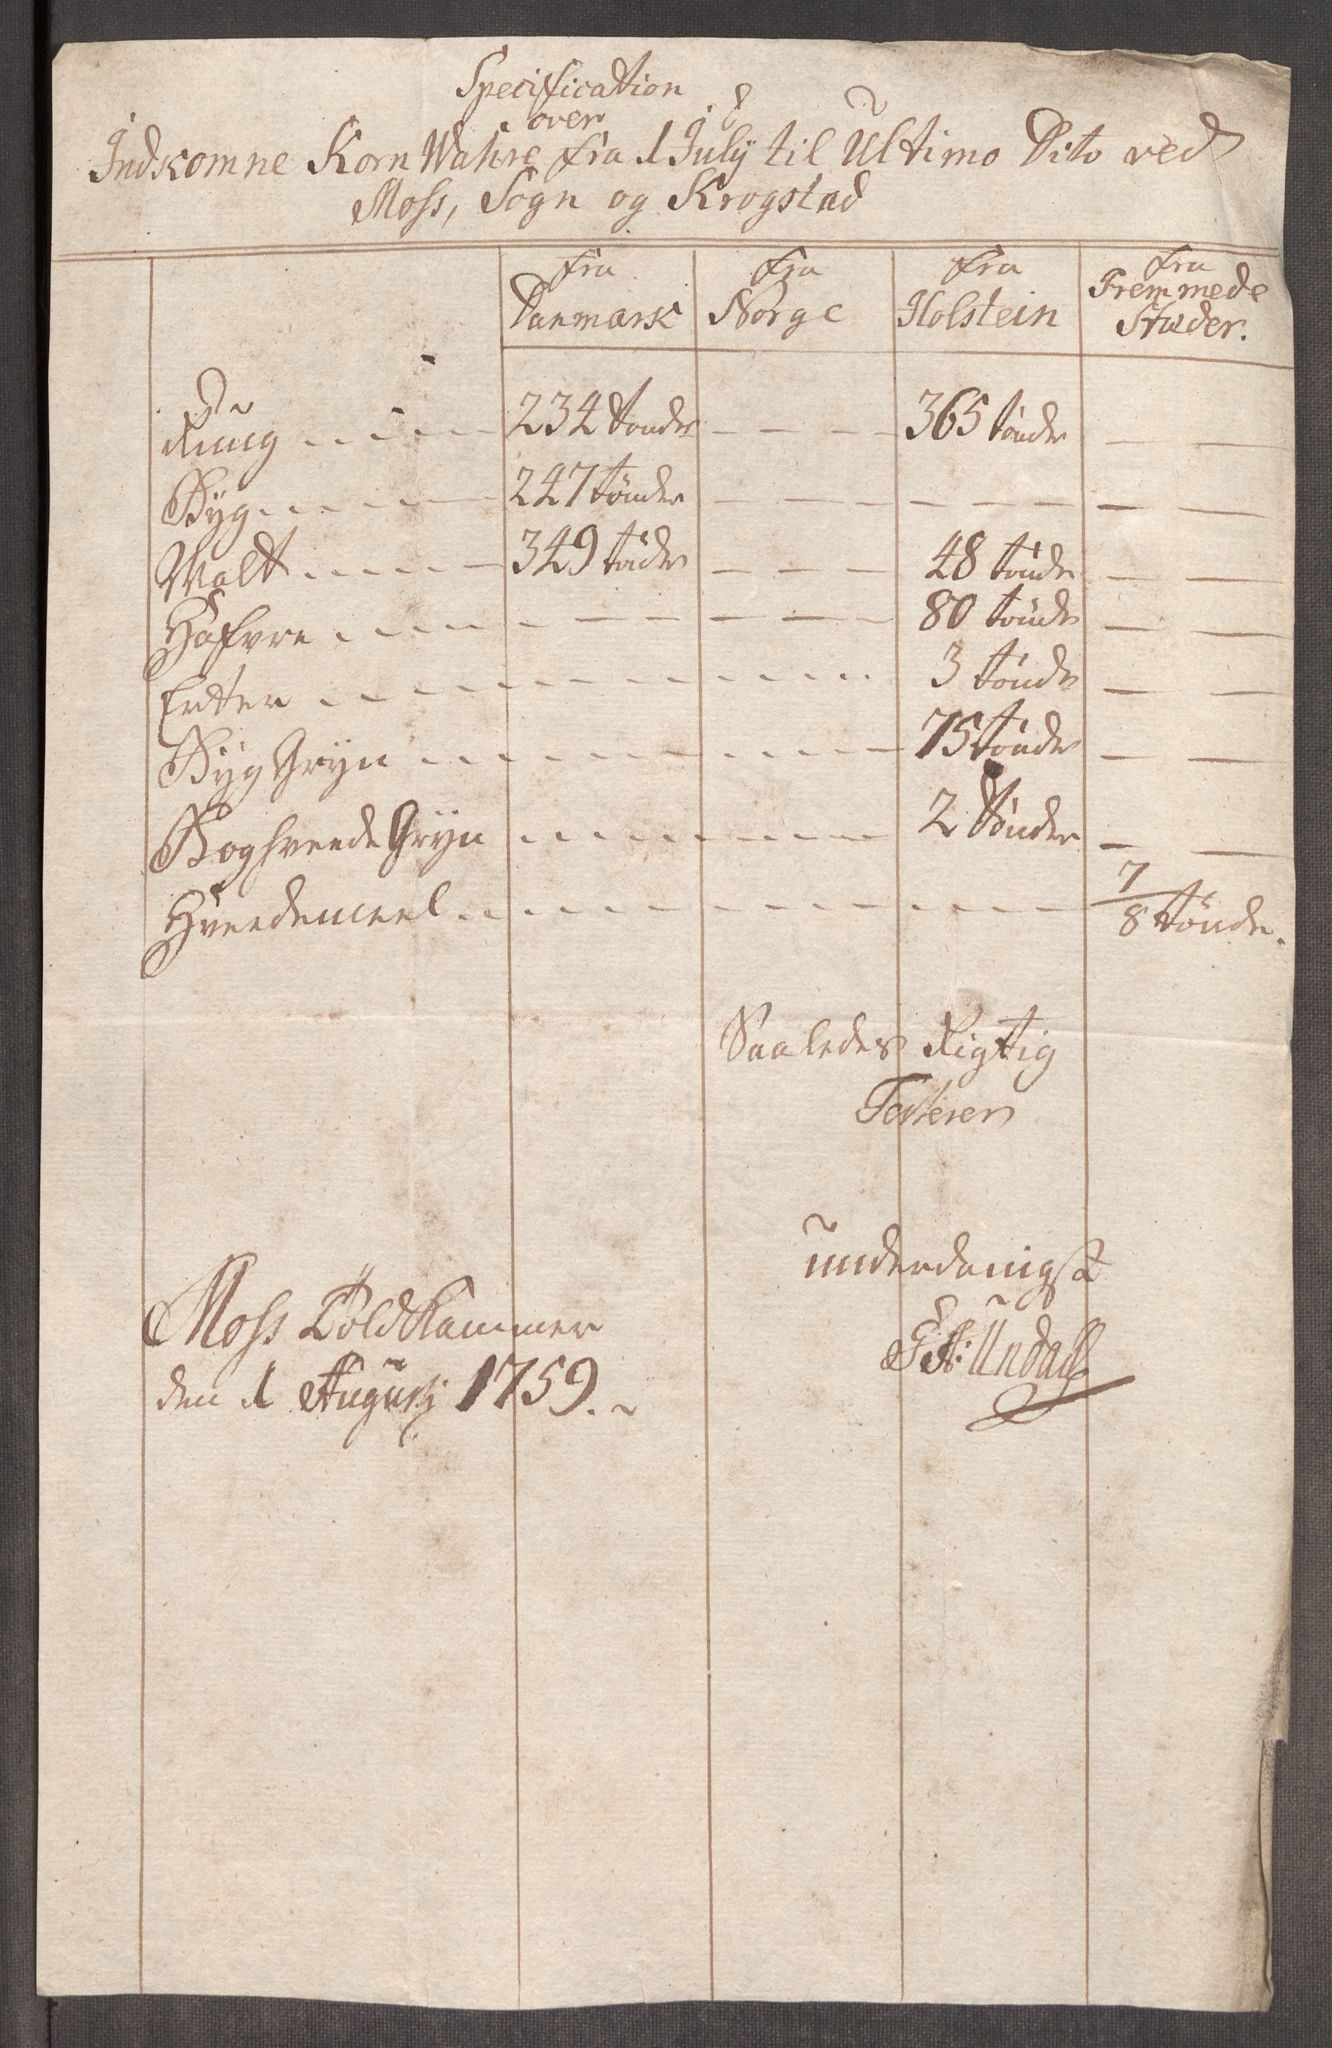 Specification
over
Indkomne Korn Wahre fra 1 July til Ultimo Dito ved
Moss, Sogn og Krogstad
fra Danmark fra Norge fra Holstein fra Fremmede Stæder.
Rug 234 tønder — — — 365 tønder — —
Byg 247 tønder — — — — — — — —
Malt 349 tøder — — — 48 tønde — —
Hafvre — — — — — — 80 tønde — —
Erter 3 tønde — —
Byg Gryn 75 tønder — —
Boghveede Gryn 2 tønder — —
Hveedemeel 7/8 tønde.
Saaledes Rigtig
Testerer
underdanigst
Moss Toldkammer
Undall
den 1 Augusti 1759.